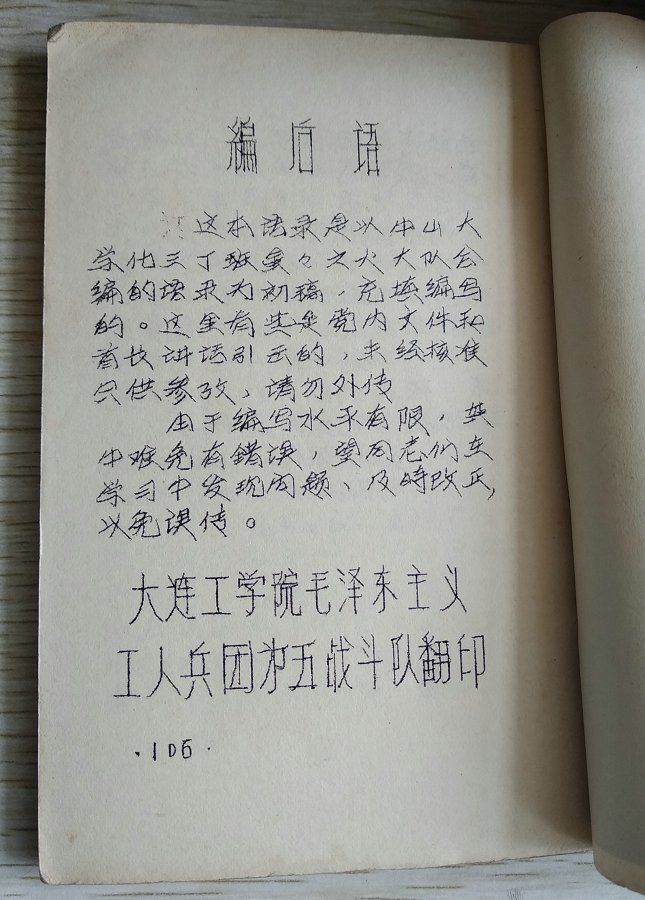 编后语
这本语录是以中山大
学化三丁班星々之火大队会
编的语录为初稿，充填编写
的。这里有些是党内文件和
首长讲话引云的，未经核准
只供参改，请勿外传
由于编写水平有限，其
中难免有错误，望同志们在
学习中发现问题、及時改正，
以免误传。
大连工学院毛泽东主义
工人兵团第五战斗队翻印
·106·